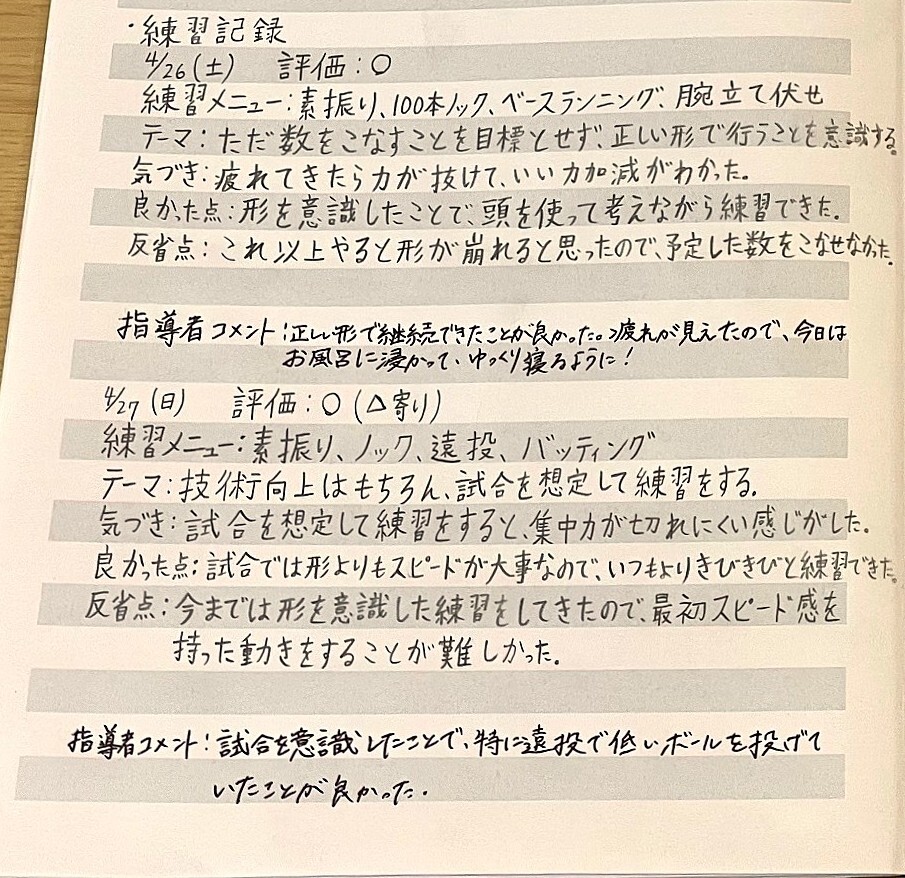 ・練習記録
4/26(土) 評価:○
練習メニュー:素振り、100本ノック、ベースランニング、腕立て伏せ
テーマ:ただ数をこなすことを目標とせず、正しい形で行うことを意識する。
気づき:疲れてきたら力が抜けて、いい力加減がわかった。
良かった点:形を意識したことで、頭を使って考えながら練習できた。
反省点:これ以上やると形が崩れると思ったので、予定した数をこなせなかった。
指導者コメント:正しい形で継続できたことが良かった。疲れが見えたので、今日は
お風呂に浸かって、ゆっくり寝るように!
4/27(日) 評価:○(△寄り)
練習メニュー:素振り、ノック、遠投、バッティング
テーマ:技術向上はもちろん、試合を想定して練習をする。
気づき:試合を想定して練習をすると、集中力が切れにくい感じがした。
良かった点:試合では形よりもスピードが大事なので、いつもよりきびきびと練習できた。
反省点:今までは形を意識した練習をしてきたので、最初スピード感を
持った動きをすることが難しかった。
指導者コメント:試合を意識したことで、特に遠投で低いボールを投げて
いたことが良かった.